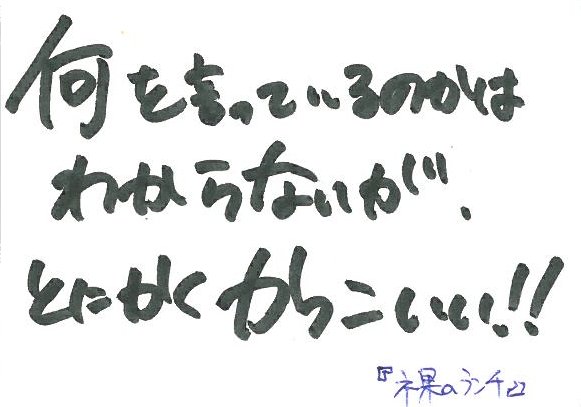 何を言っているのかは
わからないが、
とにかくかっこいい!!
『裸のランチ』